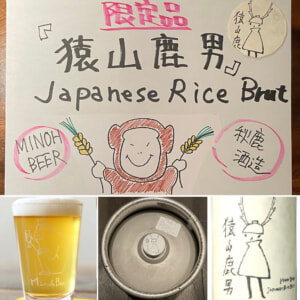 限定品
『猿山鹿男』
猿山鹿
Japanese Rice Brut
MINOH
BEER
秋鹿
酒造
猿山鹿男